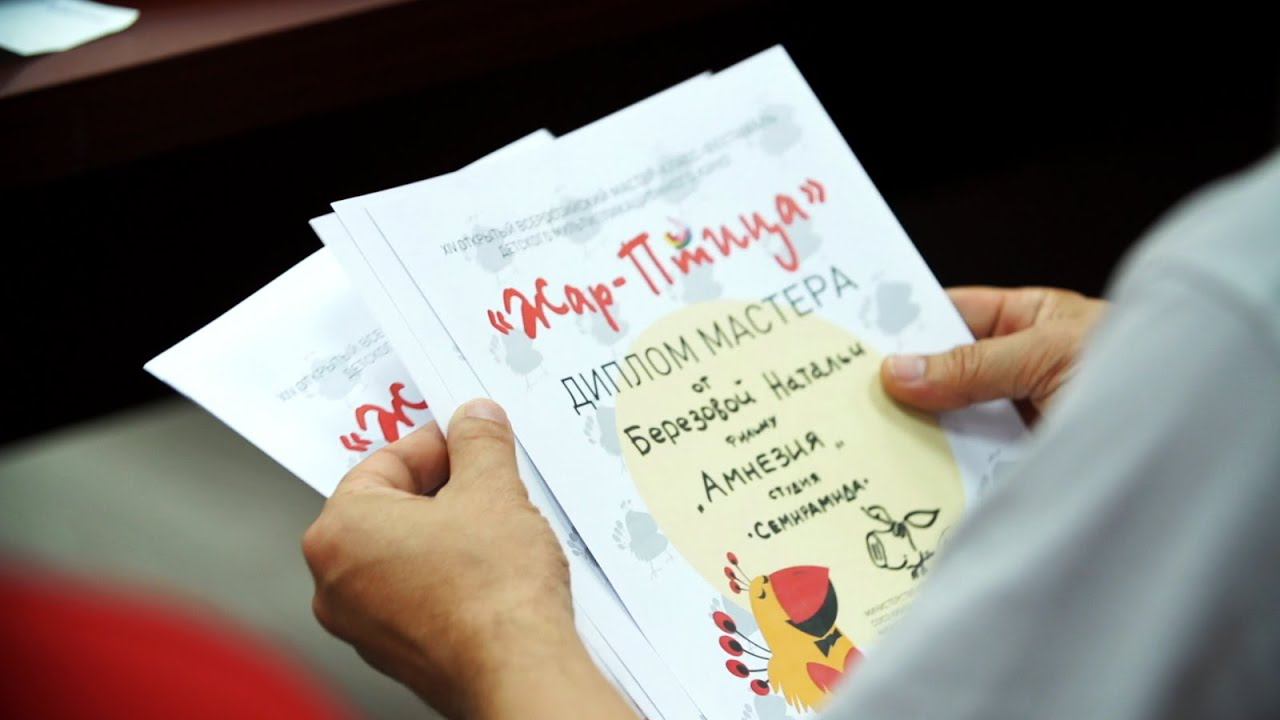 XIV ОТКРЫТЫЙ ВСЕРОССИЙСКИЙ МАСТЕР-КЛАСС-ФЕСТИВАЛЬ
ДЕТСКОГО МУЛЬТИПЛИКАЦИОННОГО КИНО
«Жар-Птица»
ДИПЛОМ МАСТЕРА
от
Березовой Натальи
фильму
„Амнезия„
студия
"Семирамида"
XIV ОТКРЫТЫЙ
ДЕТСКОГО
«Ж